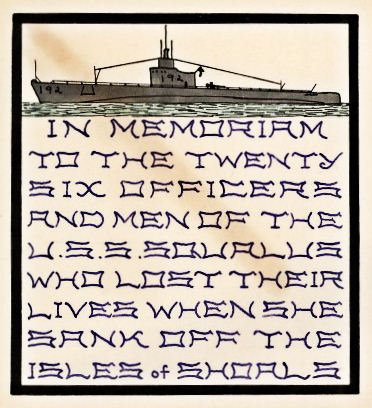 192
192
IN MEMORIAM
TO THE TWENTY
SIX OFFICERS
AND MEN OF THE
U.S.S. SQUALUS
WHO LOST THEIR
LIVES WHEN SHE
SANK OFF THE
ISLES of SHOALS